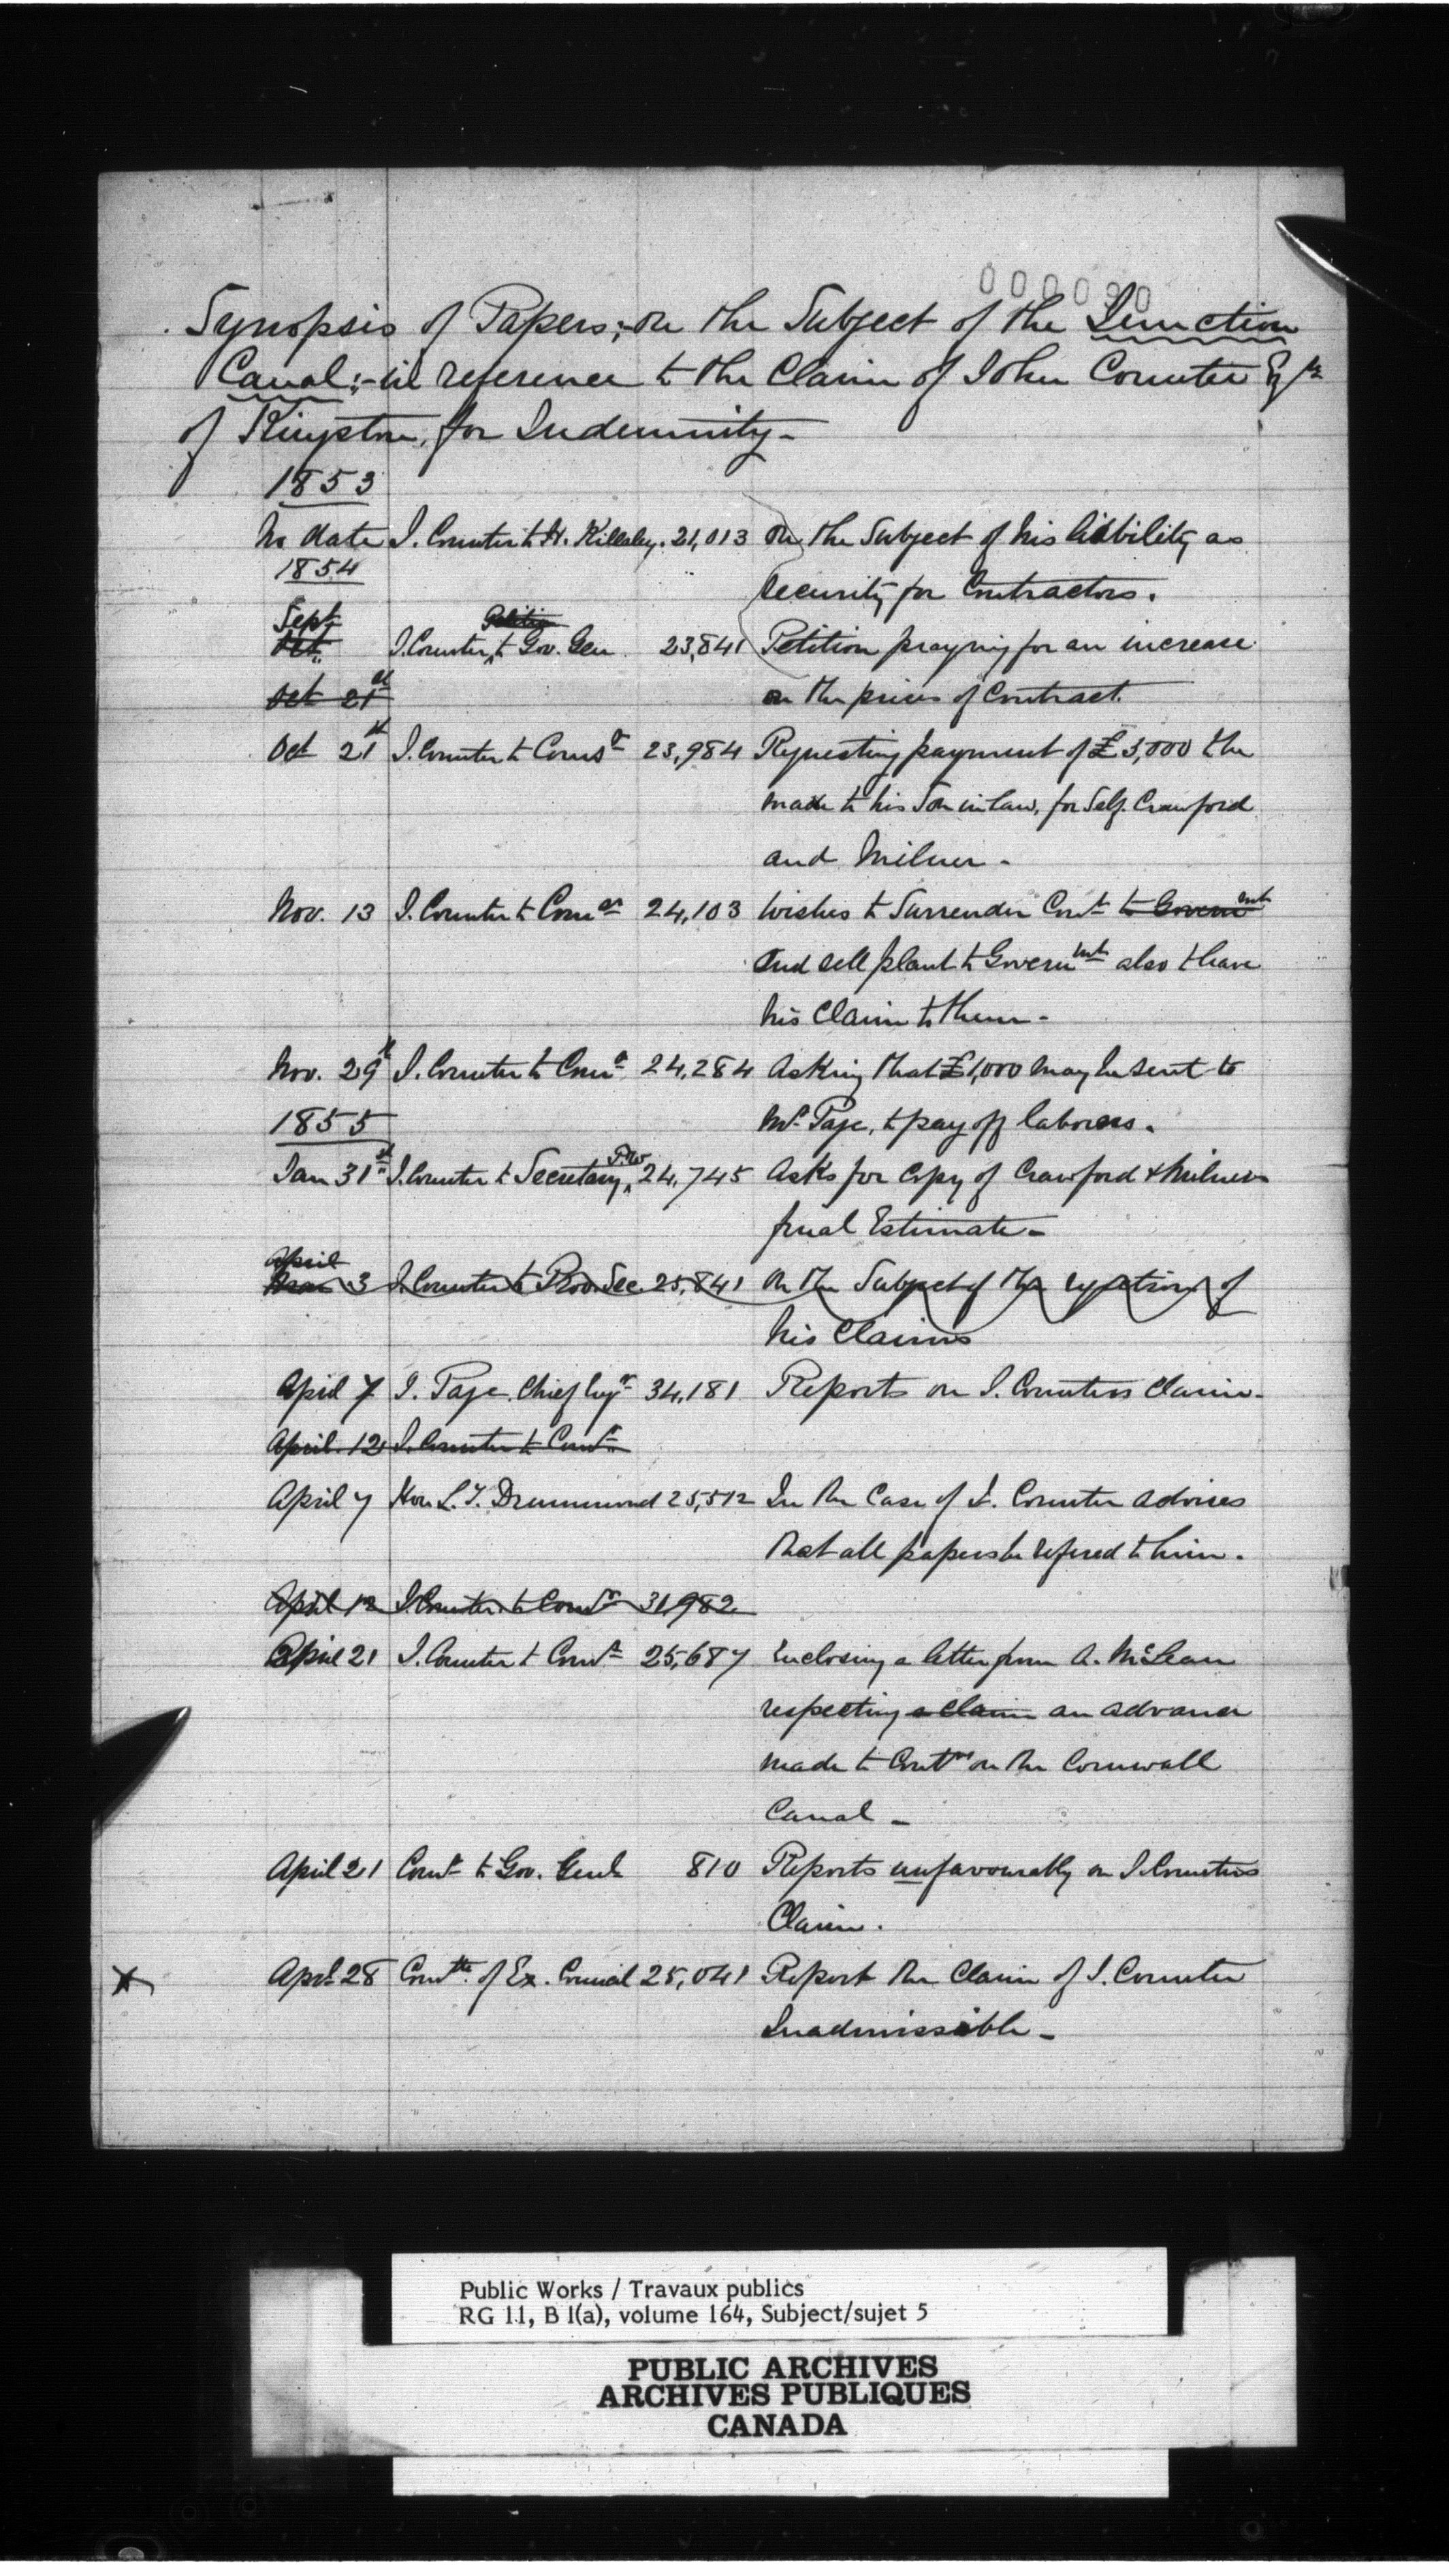 000090
Synopsis of Papers;-on the Subject of the Junction
Canal;-in reference to the Claim of John Counter Esqre
of Kingston, for Indemnity-
1853
No date J. Counter to H. Killaly. 21,013 On the Subject of his liability as
1854
security for Contractors.
Sept
Petition
Oct. J. Counter to Gov. Gen 23,841 Petition praying for an increase
Oct 21st on the prices of Contract.
Oct 21st J. Counter to Comsr 23,984 Requesting payment of £3,000 the
made to his Son in law, for Self. Crawford
and Milner -
Nov. 13 J. Counter to Comer 24,103 Wishes to Surrender Cont to Governmt
and sell plant to Governmt also t have
his Claim to them -
Nov. 29th J. Counter to Comr 24,284 Asking that £1,000 may be sent to
1855 Mr Page, to pay off laborers.
P.W
Jan 31st J. Counter to Secretary 24,745 Asks for copy of Crawford & Milners
final Estimate -
April
Mar 3 J. Counter to Prov. Sec. 25,841 On the Subject of the rejection of
his Claims
April 7 J. Page. Chief Engr 34,181 Reports on J. Counters Claim -
April 12 J. Counter to Comr
April 7 Hon. L. T. Drummond 25,512 In the Case of J. Counter advises
that all papers be refered to him.
April 12 J. Counter to Comr 31,982
April 21 J. Counter t Comr 25,687 Enclosing a letter from A. McLean
respecting a claim an advance
made to Contrs on the Cornwall
Canal -
April 21 Comr to Gov. Genl 810 Reports unfavourably on J. Counters
Claim.
x Aprl 28 Comtte of Ex. Council 25,041 Report the Claim of J. Counter
Inadmissible -
Public Works / Travaux publics
RG 11, B 1(a), volume 164, Subject/sujet 5
PUBLIC ARCHIVES
ARCHIVES PUBLIQUES
CANADA